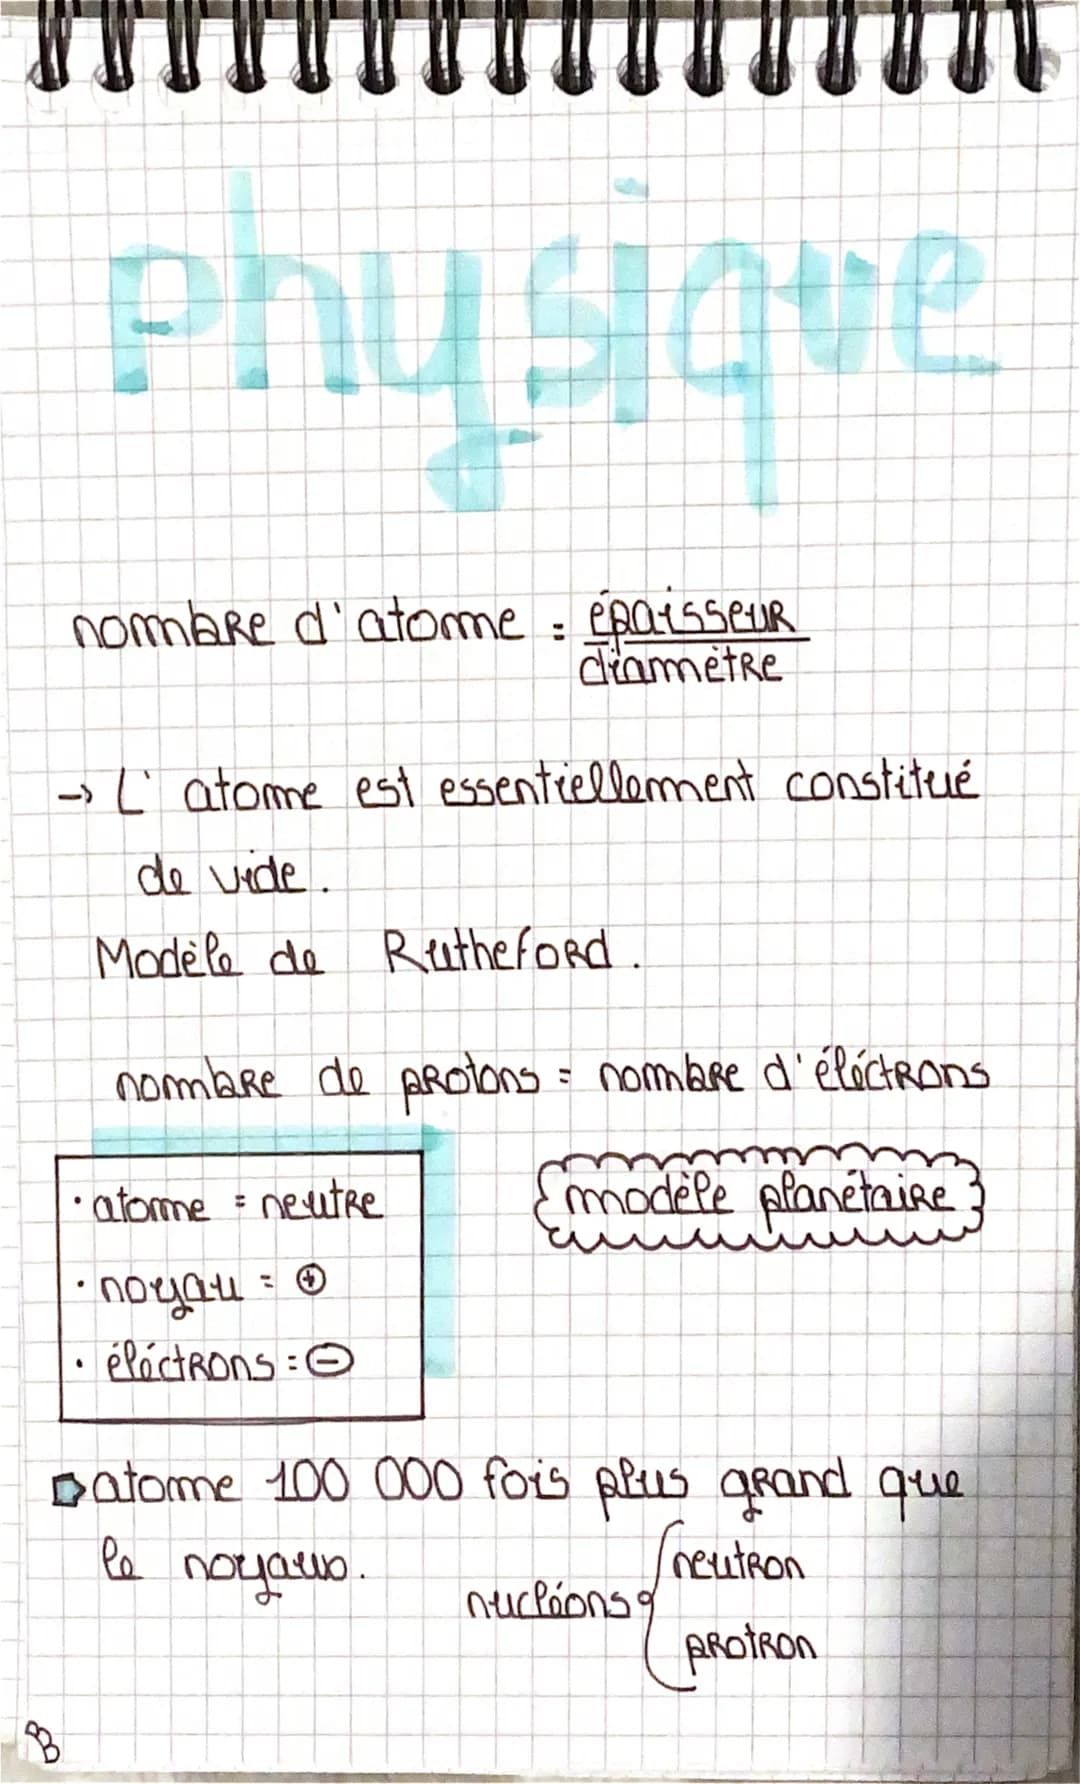 physique
nombre d'atome = épaisseur
diamètre
→ L'atome est essentiellement constitué
de vide.
Modèle de Rutheford.
nombre de protons = nombre d'éléctrons
· atome = neutre
modèle planétaire
· noyau = ⊕
· éléctrons = ⊖
atome 100 000 fois plus grand que
le noyau.
neutron
nucléons
protron
B